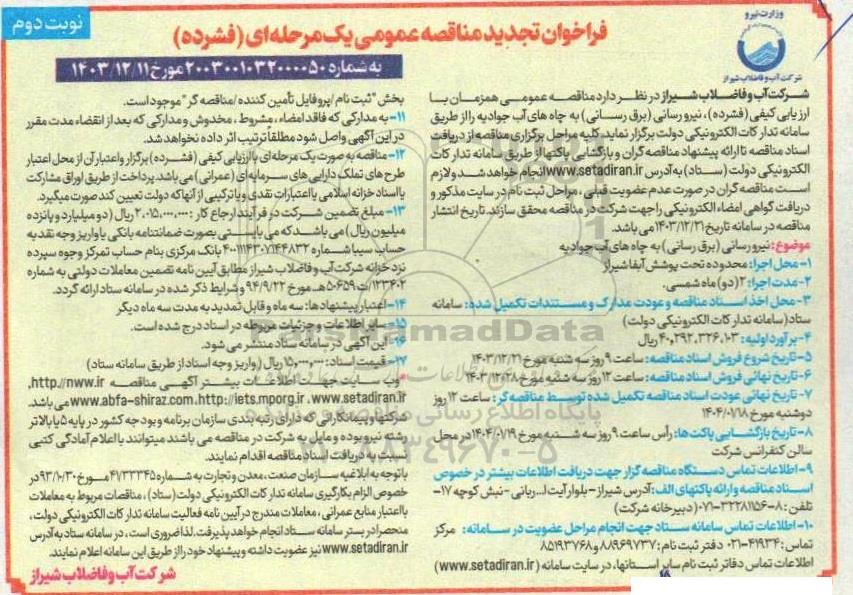 نوبت دوم
وزارت نیرو
شرکت آب و فاضلاب شیراز
فراخوان تجدید مناقصه عمومی یک مرحله ای (فشرده)
به شماره ۲۰۰۳۰۰۱۰۳۲۰۰۰۰۵۰ مورخ ۱۴۰۳/۱۲/۱۱
شرکت آب و فاضلاب شیراز در نظر دارد مناقصه عمومی همزمان با
ارزیابی کیفی (فشرده)، نیرو رسانی (برق رسانی) به چاه های آب جوادیه را از طریق
سامانه تدارکات الکترونیکی دولت برگزار نماید. کلیه مراحل برگزاری مناقصه از دریافت
اسناد مناقصه تا ارائه پیشنهاد مناقصه گران و بازگشایی پاکتها از طریق سامانه تدارکات
الکترونیکی دولت (ستاد) به آدرس www.setadiran.ir انجام خواهد شد و لازم
است مناقصه گران در صورت عدم عضویت قبلی، مراحل ثبت نام در سایت مذکور و
دریافت گواهی امضاء الکترونیکی را جهت شرکت در مناقصه محقق سازند. تاریخ انتشار
مناقصه در سامانه تاریخ ۱۴۰۳/۱۲/۲۱ می باشد.
موضوع: نیرو رسانی (برق رسانی) به چاه های آب جوادیه
۱- محل اجرا: محدوده تحت پوشش آبفا شیراز
۲- مدت اجرا: ۲ (دو) ماه شمسی.
۳- محل اخذ اسناد مناقصه و عودت مدارک و مستندات تکمیل شده: سامانه
ستاد (سامانه تدارکات الکترونیکی دولت)
۴- برآورد اولیه: ۴۰,۲۹۲,۳۲۶,۱۰۳ ریال
۵- تاریخ شروع فروش اسناد مناقصه: ساعت ۹ روز سه شنبه مورخ ۱۴۰۳/۱۲/۲۱
۶- تاریخ نهائی فروش اسناد مناقصه: ساعت ۱۲ روز سه شنبه مورخ ۱۴۰۳/۱۲/۲۸
۷- تاریخ نهائی عودت اسناد مناقصه تکمیل شده توسط مناقصه گر: ساعت ۱۲ روز
دوشنبه مورخ ۱۴۰۴/۰۱/۱۸
۸- تاریخ بازگشایی پاکت ها: رأس ساعت ۹ روز سه شنبه مورخ ۱۴۰۴/۰۱/۱۹ در محل
سالن کنفرانس شرکت
۹- اطلاعات تماس دستگاه مناقصه گزار جهت دریافت اطلاعات بیشتر در خصوص
اسناد مناقصه و ارائه پاکتهای الف: آدرس شیراز - بلوار آیت ا... ربانی - نبش کوچه ۱۷-
تلفن: ۸-۳۲۲۸۱۱۵۶-۰۷۱ (دبیرخانه شرکت)
۱۰- اطلاعات تماس سامانه ستاد جهت انجام مراحل عضویت در سامانه: مرکز
تماس: ۴۱۹۳۴-۰۲۱ دفتر ثبت نام: ۸۸۹۶۹۷۳۷ و ۸۵۱۹۳۷۶۸
اطلاعات تماس دفاتر ثبت نام سایر استانها، در سایت سامانه (www.setadiran.ir)
بخش "ثبت نام / پروفایل تأمین کننده / مناقصه گر" موجود است.
۱۱- به مدارکی که فاقد امضاء، مشروط، مخدوش و مدارکی که بعد از انقضاء مدت مقرر
در این آگهی واصل شود مطلقا ترتیب اثر داده نخواهد شد.
۱۲- مناقصه به صورت یک مرحله ای با ارزیابی کیفی (فشرده) برگزار و اعتبار آن از محل اعتبار
طرح های تملک دارایی های سرمایه ای (عمرانی) می باشد. پرداخت از طریق اوراق مشارکت
یا اسناد خزانه اسلامی یا اعتبارات نقدی و یا ترکیبی از آنها که دولت تعیین کند صورت میگیرد.
۱۳- مبلغ تضمین شرکت در فرآیند ارجاع کار: ۲,۰۱۵,۰۰۰,۰۰۰ ریال (دو میلیارد و پانزده
میلیون ریال) می باشد که می بایستی بصورت ضمانتنامه بانکی یا واریز وجه نقد به
حساب سیبا شماره ۴۰۰۱۱۱۴۳۰۷۱۴۴۸۳۲ بانک مرکزی بنام حساب تمرکز وجوه سپرده
نزد خزانه شرکت آب و فاضلاب شیراز مطابق آیین نامه تضمین معاملات دولتی به شماره
۱۲۳۴۰۲/ت۵۰۶۵۹هـ مورخ ۹۴/۹/۲۲ و شرایط ذکر شده در سامانه ستاد ارائه گردد.
۱۴- اعتبار پیشنهادها: سه ماه و قابل تمدید به مدت سه ماه دیگر
۱۵- سایر اطلاعات و جزئیات مربوطه در اسناد درج شده است.
۱۶- این آگهی در سامانه ستاد منتشر می شود.
۱۷- قیمت اسناد: ۱۵,۰۰۰,۰۰۰ ریال (واریز وجه اسناد از طریق سامانه ستاد)
وب سایت جهت اطلاعات بیشتر آگهی مناقصه http://nww.ir،
www.setadiran.ir ،http://iets.mporg.ir ،www.abfa-shiraz.com می باشد.
شرکتها و پیمانکارانی که دارای رتبه بندی سازمان برنامه و بودجه کشور در پایه ۵ یا بالاتر
رشته نیرو بوده و مایل به شرکت در مناقصه می باشند میتوانند با اعلام آمادگی کتبی
نسبت به دریافت اسناد مناقصه اقدام نمایند.
با توجه به ابلاغیه سازمان صنعت، معدن و تجارت به شماره ۴۷۳۳۳۴۵ مورخ ۹۳/۱۰/۳۰ در
خصوص الزام بکارگیری سامانه تدارکات الکترونیکی دولت (ستاد)، مناقصات مربوط به معاملات
با اعتبار منابع عمرانی، معاملات مندرج در آیین نامه فعالیت سامانه تدارکات الکترونیکی دولت،
منحصرا در بستر سامانه ستاد انجام خواهد پذیرفت. لذا ضروری است، در سامانه ستاد به آدرس
www.setadiran.ir نیز عضویت داشته و پیشنهاد خود را از طریق این سامانه اعلام نمایند.
شرکت آب و فاضلاب شیراز